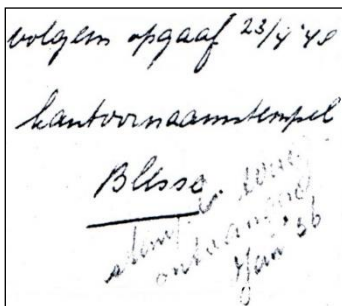 volgens opgaaf 23/4 '48
kantoornaamstempel
Blesse
stempel terug
ontvangen
Jan '56